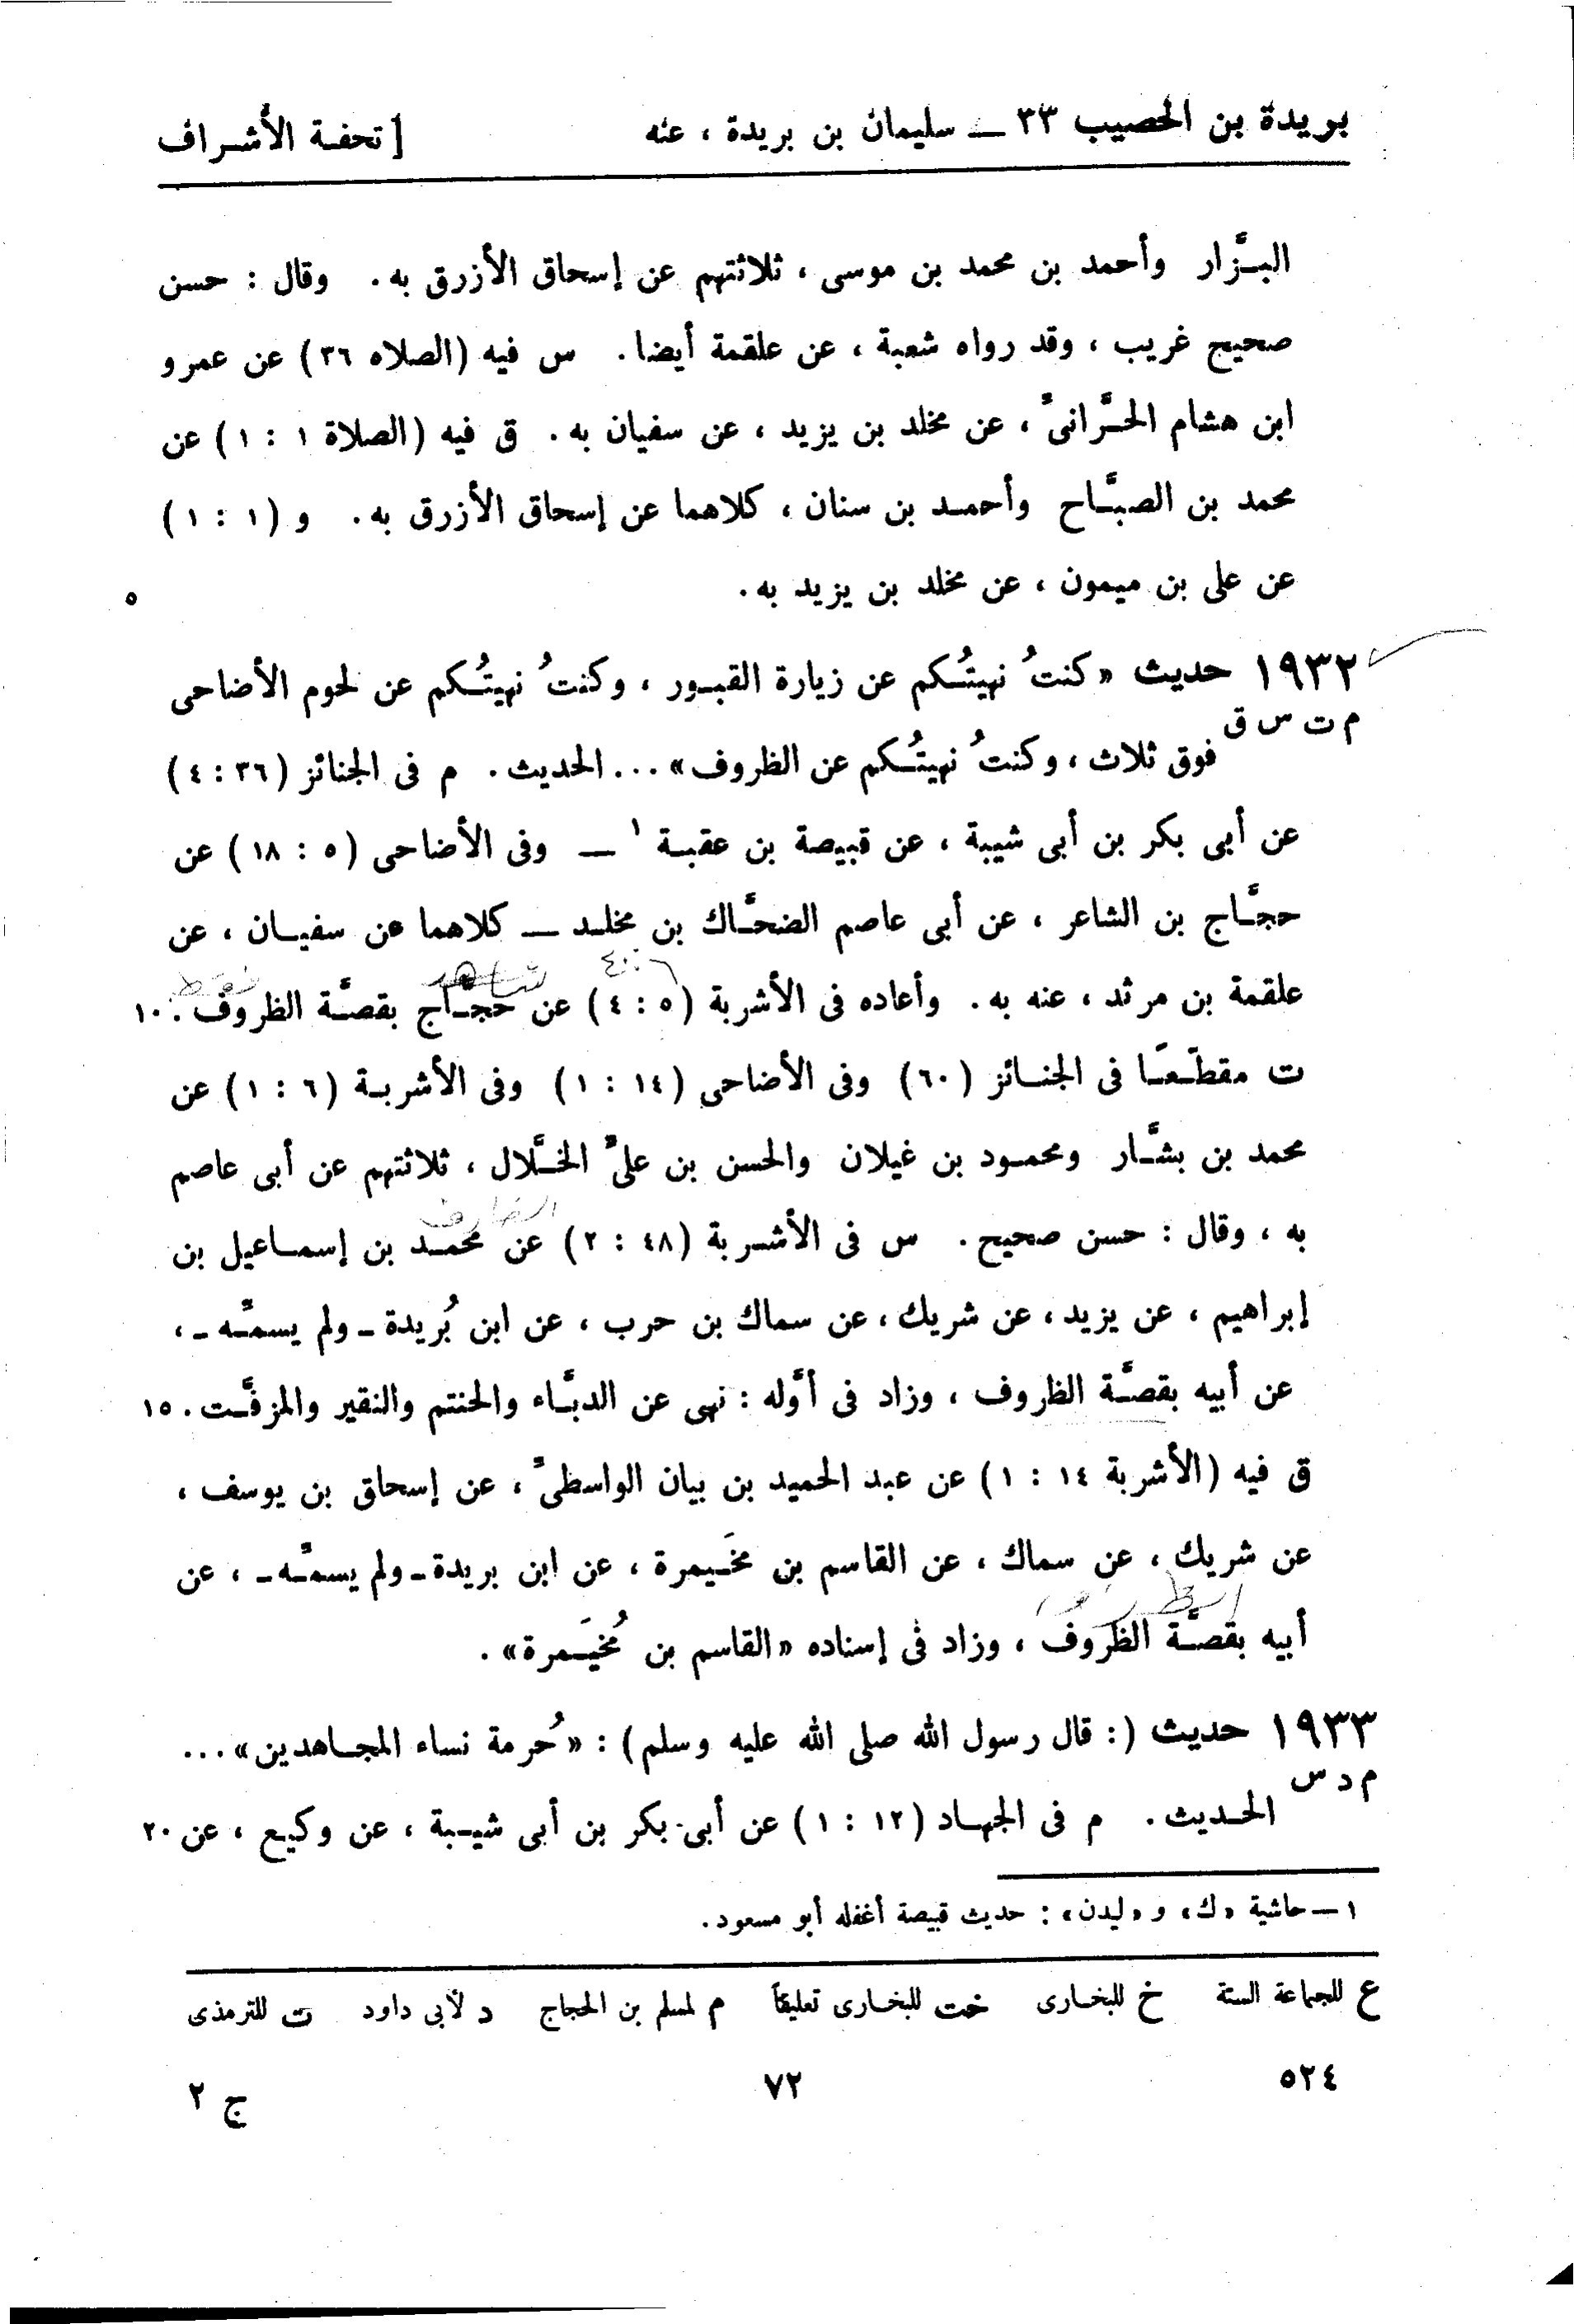 بريدة بن الحصيب ٣٣ ــ سليمان بن بريدة ، عنه [ تحفة الأشراف
البزَّار وأحمد بن محمد بن موسى ، ثلاثتهم عن إسحاق الأزرق به . وقال : حسن
صحيح غريب ، وقد رواه شعبة ، عن علقمة أيضا . س فيه (الصلاه ٣٦) عن عمرو
ابن هشام الحرَّانىّ ، عن مخلد بن يزيد ، عن سفيان به . ق فيه (الصلاة ١ : ١) عن
محمد بن الصبَّاح وأحمد بن سنان ، كلاهما عن إسحاق الأزرق به . و (١ : ١)
عن على بن ميمون ، عن مخلد بن يزيد به . ٥
١٩٣٢ حديث « كنتُ نهيتُكم عن زيارة القبور ، وكنتُ نهيتُكم عن لحوم الأضاحى
م ت س ق
فوق ثلاث ، وكنتُ نهيتُكم عن الظروف » ... الحديث . م فى الجنائز (٣٦ : ٤)
عن أبى بكر بن أبى شيبة ، عن قبيصة بن عقبة ١ ــ وفى الأضاحى (٥ : ١٨) عن
حجَّاج بن الشاعر ، عن أبى عاصم الضحَّاك بن مخلد ــ كلاهما عن سفيان ، عن
علقمة بن مرثد ، عنه به . وأعاده فى الأشربة (٥ : ٤) عن حجَّاج بقصَّة الظروف . ١٠
ت مقطّعًا فى الجنائز (٦٠) وفى الأضاحى (١٤ : ١) وفى الأشربة (٦ : ١) عن
محمد بن بشَّار ومحمود بن غيلان والحسن بن علىّ الخلَّال ، ثلاثتهم عن أبى عاصم
به ، وقال : حسن صحيح . س فى الأشربة (٤٨ : ٢) عن محمد بن إسماعيل بن
إبراهيم ، عن يزيد ، عن شريك ، عن سماك بن حرب ، عن ابن بُريدة ـ ولم يسمّه ـ ،
عن أبيه بقصَّة الظروف ، وزاد فى أوَّله : نهى عن الدبَّاء والحنتم والنقير والمزفَّت . ١٥
ق فيه (الأشربة ١٤ : ١) عن عبد الحميد بن بيان الواسطىّ ، عن إسحاق بن يوسف ،
عن شريك ، عن سماك ، عن القاسم بن مخَيمرة ، عن ابن بريدة ـ ولم يسمّه ـ ، عن
أبيه بقصَّة الظروف ، وزاد فى إسناده « القاسم بن مُخيَمرة » .
١٩٣٣ حديث (: قال رسول الله صلى الله عليه وسلم) : « حُرمة نساء المجاهدين » ...
م د س
الحديث . م فى الجهاد (١٢ : ١) عن أبى بكر بن أبى شيبة ، عن وكيع ، عن ٢٠
١ ــ حاشية « ك » و « ليدن » : حديث قبيصة أغفله أبو مسعود .
ع للجماعة الستة خ للبخارى خت للبخارى تعليقاً م لمسلم بن الحجاج د لأبى داود ت للترمذى
٥٢٤ ٧٢ ج ٢